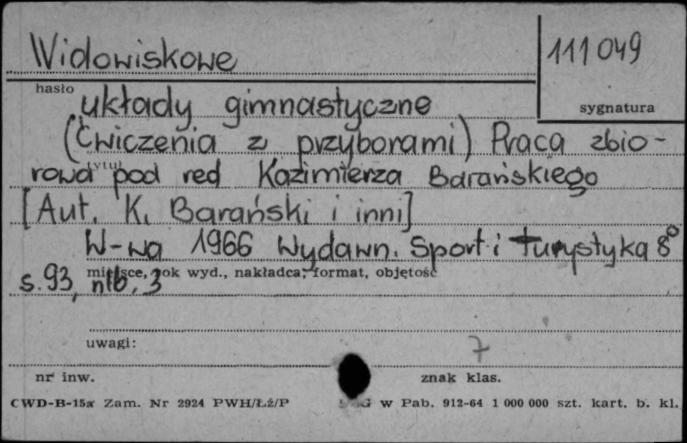 Widowiskowe
111049
hasło
układy gimnastyczne
sygnatura
(Ćwiczenia z przyborami) Praca zbio-
tytuł
rowa pod red Kazimierza Barańskiego
[Aut. K. Barański i inni]
W-wa 1966 Wydawn. Sport i Turystyka 8°
miejsce, rok wyd., nakładca, format, objętość
s. 93, nlb. 3
uwagi:
7
nr inw.
znak klas.
CWD-B-15a Zam. Nr 2924 PWH/Łź/P
w Pab. 912-64 1 000 000 szt. kart. b. kl.